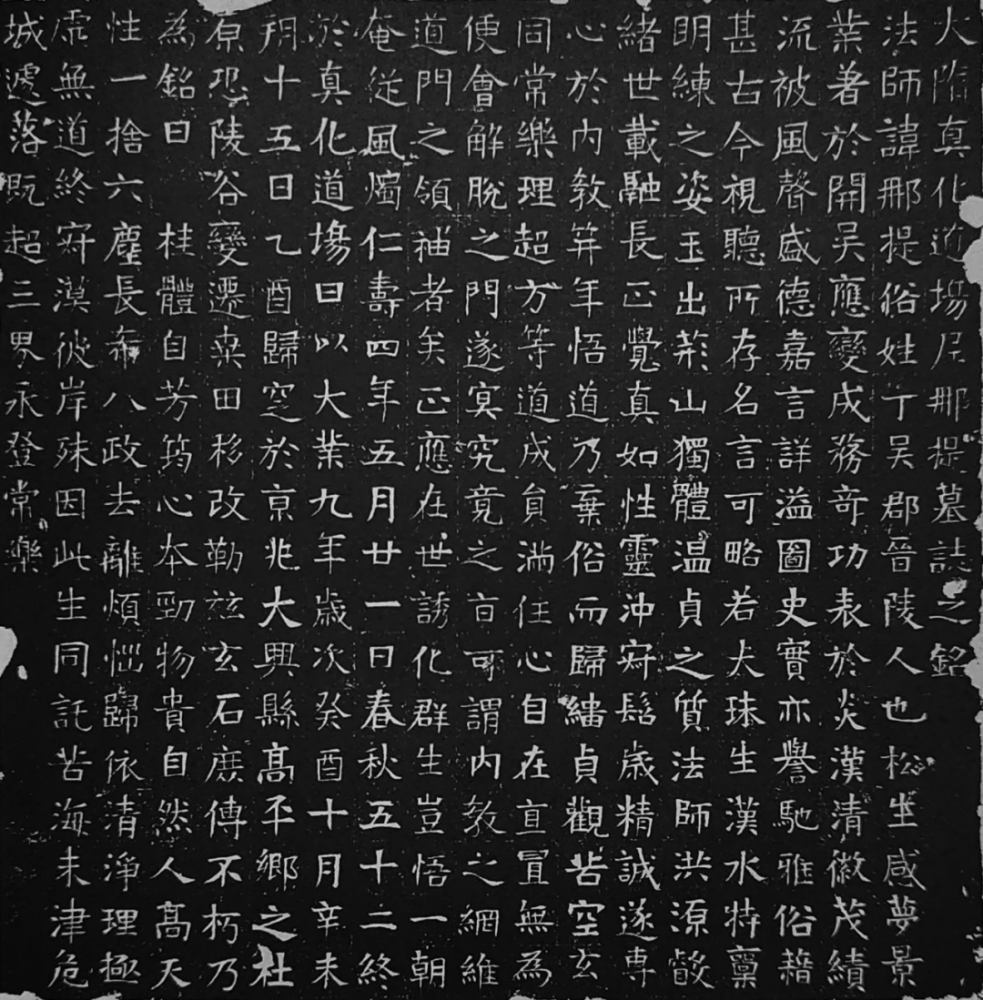 大隋真化道場尼那提墓誌之銘
法師諱那提俗姓丁吳郡晉陵人也松生感夢景
業著於開吳應變成務奇功表於炎漢清徽茂績
流被風聲盛德嘉言詳溢圖史實亦譽馳雅俗藉
甚古今視聽所存名言可略若夫珠生漢水特稟
明練之姿玉出荊山獨體温貞之質法師洪源㲄
緒世載融長正覺真如性靈沖㝛髫歲精誠遂專
心於內教笄年悟道乃棄俗而歸緇貞觀苦空玄
同常樂理超方等道成員滿任心自在直置無為
便會解脫之門遂冥究竟之旨可謂內教之綱維
道門之領袖者矣正應在世誘化群生豈悟一朝
奄從風燭仁壽四年五月廿一日春秋五十二終
於真化道塲曰以大業九年歲次癸酉十月辛未
朔十五日乙酉歸窆於京兆大興縣高平鄉之杜
原恐陵谷變遷桒田移改勒玆玄石庶傳不朽乃
為銘曰　桂體自芳筠心本勁物貴自然人高天
性一捨六塵長希八政去離煩惱歸依清淨理極
虛無道終㝛漠彼岸殊因此生同託苦海未津危
城遽落既超三界永登常樂